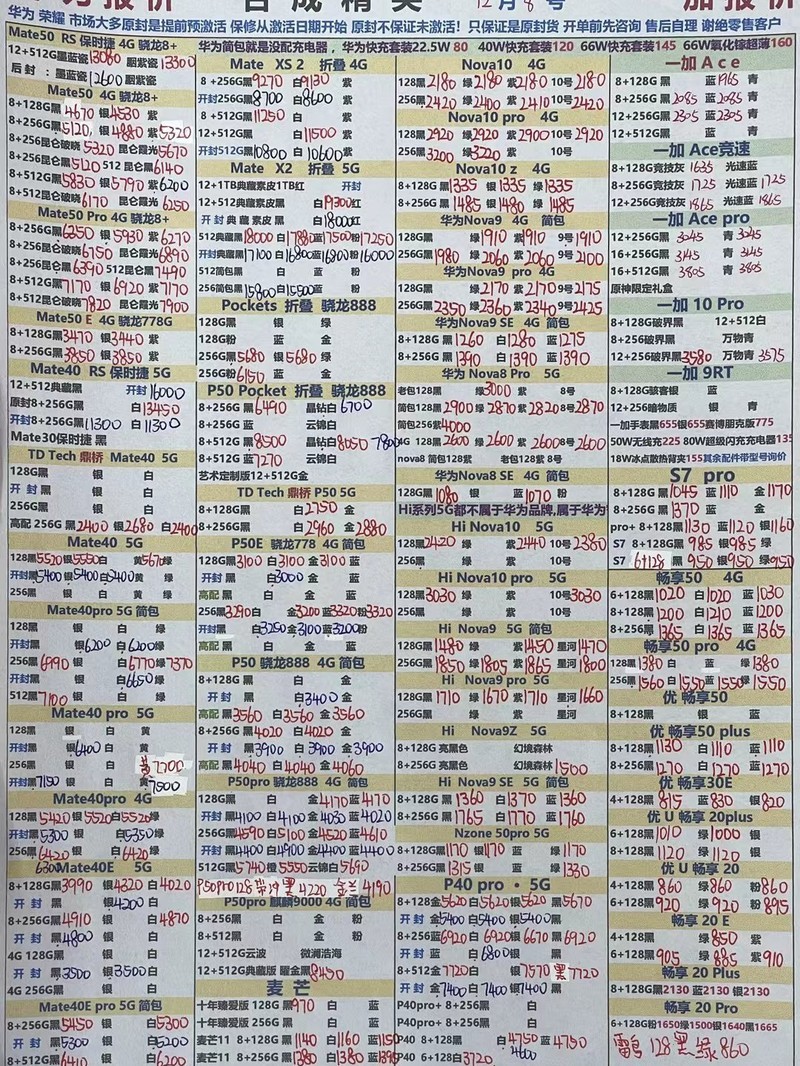 方报价 合成精英 12月8号 加报价
华为 荣耀 市场大多原封是提前预激活 保修从激活日期开始 原封不保证未激活！只保证是原封货 开单前先咨询 售后自理 谢绝零售客户
Mate50 RS 保时捷 4G 骁龙8+
12+512G墨蓝瓷13060 胭紫瓷13300
后封：墨蓝瓷12600 胭紫瓷
Mate50 4G 骁龙8+
8+128G黑4670 银4530 紫
8+256G黑5120 银4880 紫5320
8+256昆仑破晓5320 昆仑霞光5670
8+256昆仑黑5120 512昆仑黑6140
8+512G黑5830 银5790 紫6200
8+512昆仑破晓6170 昆仑霞光6250
Mate50 Pro 4G 骁龙8+
8+256G黑6250 银5930 紫6270
8+256昆仑破晓6750 昆仑霞光6890
8+256昆仑黑6390 512昆仑黑7490
8+512G黑7170 银6920 紫7170
8+512昆仑破晓7820 昆仑霞光7900
Mate50 E 4G 骁龙778G
8+128G黑3470 银3440 紫
8+256G黑3850 银3850 紫
Mate40 RS 保时捷 5G
12+512典藏黑 开封16000
原封8+256G黑 白13450
开封8+256G黑11300 白11300
Mate30保时捷 黑
TD Tech 鼎桥 Mate40 5G
128G黑 银 白
开 封 黑 银 白
256G黑 银 白
高配 256G 黑2400 银2680 白2400
Mate40 5G
128黑5520银5550白 黄5670绿
开封黑5400银5400白5400黄 绿
256黑 银 白 黄 绿
Mate40pro 5G 简包
128黑 银 白 绿
开封黑 银6200 白6200绿
256黑6990 银 白6770绿7370
开封黑 银 白6650 绿
512黑7100 银 白 绿
Mate40 pro 5G
128黑 银 白 黄
开封黑 银6400 白 黄
256黑 银 白 黄7700
开封黑7150 银 白 黄7500
Mate40pro 4G
128黑5420 银5520白5520绿
开封黑5300 银 白5350绿
256黑6420 银 白6420 绿
6300
Mate40E 5G
8+128G黑3990 银4320 白4020
开 封 黑 银4200 白
8+256G黑4910 银 白4870
开 封 黑4800 银 白
4G 128G黑 银 白
开 封 黑3500 银3500白
4G 256G黑 银 白
Mate40E pro 5G 简包
8+256G黑5450 银 白5300
开 封 黑5300 银 白5200
8+512G黑6410 银 白6200
华为简包就是没配充电器，华为快充套装22.5W 80 40W快充套装120 66W快充套装145 66W氮化镓超薄160
Mate XS 2 折叠 4G
8 +256G黑9270 白9130 紫
开封256G黑8700 白8600 紫
8 +512G黑11250 白 紫
12+512G黑 白11500 紫
开封512G黑10800 白10600紫
Mate X2 折叠 5G
12+1TB典藏素皮1TB红 开封
12+512典藏素皮黑 白19300红
开 封 典 藏 素皮 黑 白18000红
512典藏黑18000 白17880蓝17500粉17250
开封典藏黑17100 白16800蓝16800粉16000
512简包黑 白 蓝 粉
256简包黑15800白15500蓝 粉
Pockets 折叠 骁龙888
128G黑 银 绿
128G粉 蓝 金
256G黑5680 银5680 绿
256G粉6150 蓝 金
P50 Pocket 折叠 骁龙888
8+256G 黑6490 晶钻白6700
8+256G 蓝 云锦白
8+512G 黑8500 晶钻白8050 7800
8+512G 蓝7270 云锦白
艺术定制版12+512G金
TD Tech 鼎桥 P50 5G
8+128G 黑 白2750 金
8+256G 黑 白2960 金2880
P50E 骁龙778 4G 简包
128G黑3100 白3100 金3100 蓝
开封黑 白3000 金 蓝
高配黑 白 金 蓝
256黑3290白 金3200 蓝3320粉3320
开封黑 白3250 金3100 蓝3200粉
高配黑 白 金 蓝
P50 骁龙888 4G 简包
8+128G黑 白 金
开 封 黑 白3400 金
高配 黑3560 白3560 金3560
8+256G黑4020 白4020 金
开 封 黑3900 白3900 金3900
高配 黑4040 白4040 金4060
P50pro 骁龙888 4G 简包
128G黑 白 金4170 蓝4170
开封黑4100 白4100金4030 蓝4020
256G黑4590 白5100 金4520 蓝4610
开封黑4400 白4900 金4400 蓝4400
512G黑5740橙5550云锦白5690
P50pro128 黑4220 金4190
P50pro 麒麟9000 4G 简包
8+256黑 白 金 粉
8+512黑 白 金 粉
12+512G云波 微澜浩海
12+512G典藏版 曜金黑8450
麦 芒
十年臻爱版 128G 黑970 白 蓝
十年臻爱版 256G 黑 白 蓝
麦芒11 8+128G 黑1140 白1160 蓝1150
麦芒11 8+256G 黑1380 白1380 蓝1395
Nova10 4G
128黑2180 绿2180 紫2180 10号2180
256黑2420 绿2400 紫2410 10号2420
Nova10 pro 4G
128黑2920 绿2920 紫2900 10号2920
256黑3200 绿3220 紫 10号
Nova10 z 4G
8+128黑1335 银1335 绿1335
8+256黑1485 银1480 绿1485
华为Nova9 4G 简包
128G黑 绿1910 紫1910 9号1910
256G黑1980 绿2060 紫2060 9号2100
华为Nova9 pro 4G
128G黑 绿2170 紫2170 9号2175
256G黑2350 绿2360 紫2340 9号2425
华为Nova9 SE 4G 简包
8+128G 黑1260 白1280 蓝1275
8+256G 黑1390 白1390 蓝1390
华为 Nova8 Pro 5G
老包128黑 绿3000 紫 8号
简包128黑2900绿2870 紫2820 8号2870
简包256紫4000
4G 128黑2600 绿2600 紫2600 8号2600
nova8 简包128紫 老包128紫 8号
华为Nova8 SE 4G 简包
128G黑1080 银 蓝1070 粉
Hi系列5G都不属于华为品牌,属于华为
Hi Nova10 5G
128黑2420 绿 紫2440 10号2380
256黑 绿 紫 10号
Hi Nova10 pro 5G
128黑3030 绿 紫 10号3030
256黑 绿 紫 10号
Hi Nova9 5G 简包
128G黑1480 绿 紫1450 星河1470
256G黑1850 绿1805 紫1865 星河1800
Hi Nova9 pro 5G
128G黑1710 绿1670 紫1710 星河1660
256G黑 绿 紫 星河
Hi Nova9Z 5G
8+128G 亮黑色 幻境森林
8+256G 亮黑色 幻境森林1500
Hi Nova9 SE 5G 简包
8+128G 黑1360 白1370 蓝1360
8+256G 黑1765 白1770 蓝1760
Nzone 50pro 5G
8+128G 黑1170 银1170 绿1170
8+256G 黑1315 银 绿1330
P40 pro · 5G
8+128金5620 白5620银5620 黑5670
开 封 金5400 白5400 银5400黑
8+256蓝6920 白6920银6670 黑6920
开 封 蓝 白6800 银 黑
8+512金7720白 银7570 黑7720
开 封 金7400 白7400 银7400 黑
P40pro+ 8+256黑 白
P40pro+ 8+256黑 白
P40 8+128黑 白4750 蓝4750
4600
P40 6+128白3720
一加 Ace
8+128G 黑 蓝1965 青
8+256G 黑2085 蓝2085 青
12+256G 黑2305 蓝2305 青
12+512G 黑 蓝 青
一加 Ace竞速
8+128G竞技灰1635 光速蓝
8+256G竞技灰1725 光速蓝1725
12+256G竞技灰1865 光速蓝1865
一加 Ace pro
12+256G 黑3045 青3045
16+256G 黑3145 青3145
16+512G 黑3805 青3805
原神限定礼盒
一加 10 Pro
8+128G破界黑 12+512白
8+256破界黑 万物青
12+256破界黑3580 万物青3575
一加 9RT
8+128G骇客银 蓝
12+256暗物质 银 青
一加手表黑655银655赛博朋克版775
50W无线充225 80W超级闪充充电器135
18W冰点散热背夹155其余配件带型号询价
S7 pro
8+128G 黑1045 蓝1110 金1170
8+256G 黑1370 蓝 金
pro+ 8+128黑1130 蓝1120 银1160
S7 8+128G 黑985 蓝985 银
S7 6+128 黑950 蓝950 银950
畅享50 4G
6+128黑1020 白1020 蓝1030
8+128黑1200 白1210 蓝1200
8+256黑1365 白1365 蓝1365
畅享50 pro 4G
128黑1380 白 蓝 绿1380
256黑1560 白1550 蓝1550绿1550
优 畅享50
8+128黑 银 蓝
优 畅享50 plus
8+128黑1130 白1110 蓝1110
8+256黑1270 白1270 蓝1270
优 畅享30E
4+128黑815 蓝830 银820
优 U 畅享20plus
6+128黑1010 绿1000 银
8+128黑1120 绿1120 银
优 U 畅享 20
4+128黑860 绿860 粉860
6+128黑920 绿920 粉895
畅享 20 E
4+128黑 绿850 紫
6+128黑905 绿885 紫910
畅享 20 Plus
8+128G黑2130 蓝2130 银2130
畅享 20 Pro
6+128G粉1650绿1500银1640黑1665
雷鸟 128 黑 绿 860